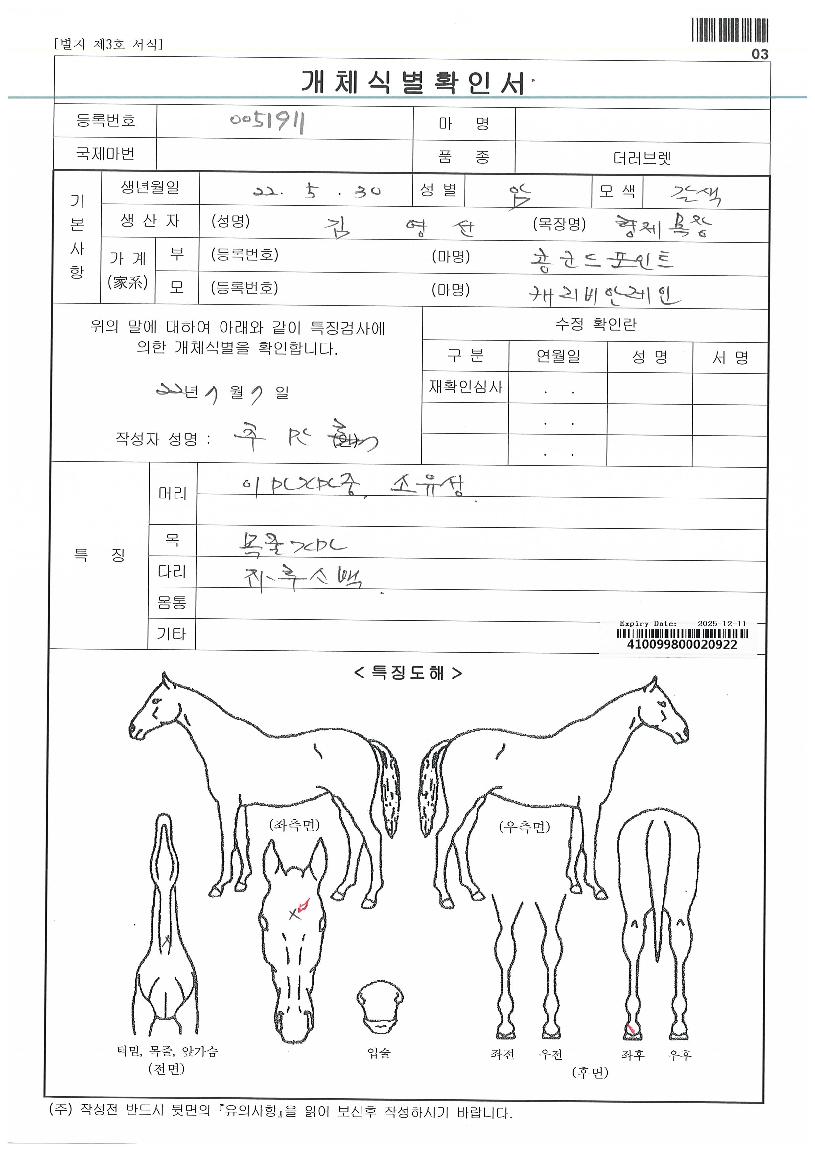 [별지 제3호 서식]
03
개체식별확인서
등록번호 0051911 마 명
국제마번 품 종 더러브렛
기본사항
생년월일 22. 5. 30 성별 암 모색 갈색
생산자 (성명) 김영산 (목장명) 형제목장
가계 (家系) 부 (등록번호) (마명) 콩코드포인트
모 (등록번호) (마명) 캐리비안레인
위의 말에 대하여 아래와 같이 특징검사에
의한 개체식별을 확인합니다.
22년 7월 7일
작성자 성명 : 주
수정 확인란
구분 연월일 성명 서명
재확인심사 . .
. .
. .
특 징
머리 소유성
목
다리 좌후소백
몸통
기타
Expiry Date: 2025-12-11
410099800020922
< 특징도해 >
(좌측면) (우측면)
턱밑, 목줄, 앞가슴
(전면)
입술
좌전 우전 좌후 우후
(후면)
(주) 작성전 반드시 뒷면의 『유의사항』을 읽어 보신후 작성하시기 바랍니다.